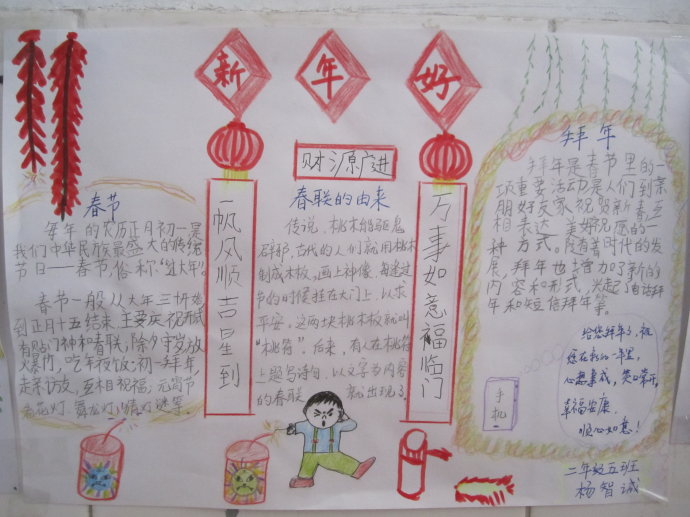 新年好
财源广进
一帆风顺吉星到
万事如意福临门
春节
每年的农历正月初一是
我们中华民族最盛大的传统
节日——春节,俗称“过大年”。
春节一般从大年三十开始
到正月十五结束,主要庆祝形式
有贴门神和春联,除夕守岁放
火爆竹,吃年夜饭;初一拜年,
走亲访友,互相祝福,元宵节
看花灯,舞龙灯,猜灯谜等。
春联的由来
传说,桃木能驱鬼
辟邪,古代的人们就用桃木
制成木板,画上神像,每逢过
节的时候挂在大门上,以求
平安,这两块桃木板就叫
“桃符”。后来,有人在桃符
上题写诗句,以文字为内容
的春联就出现了
拜年
拜年是春节里的一
项重要活动是人们到亲
朋好友家祝贺新春,互
相表达美好祝愿的一
种方式。随着时代的发
展,拜年也增加了新的
内容和形式,兴起了电话拜
年和短信拜年等。
给您拜年了,祝
您在新的一年里,
心想事成,笑口常开,
幸福安康,
顺心如意!
手机
二年级五班
杨智诚